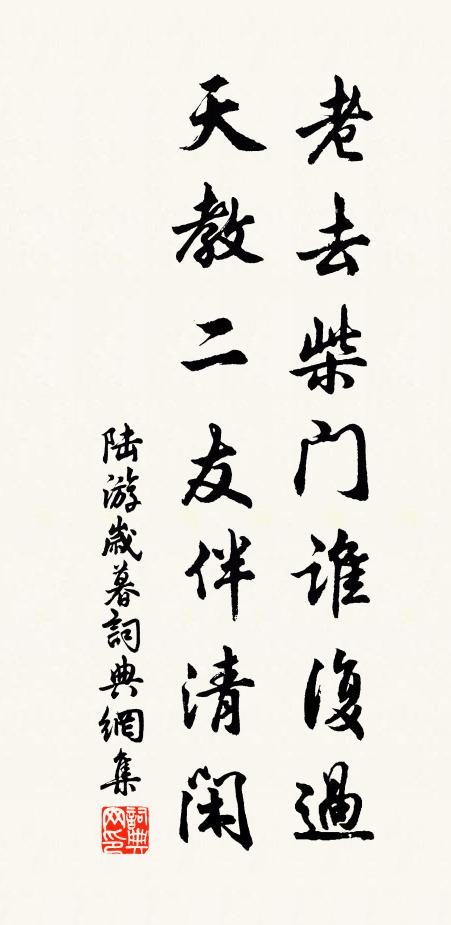 老去柴门谁復過
天教二友伴清闲
陆游歲暮詞典網集
詞典网印